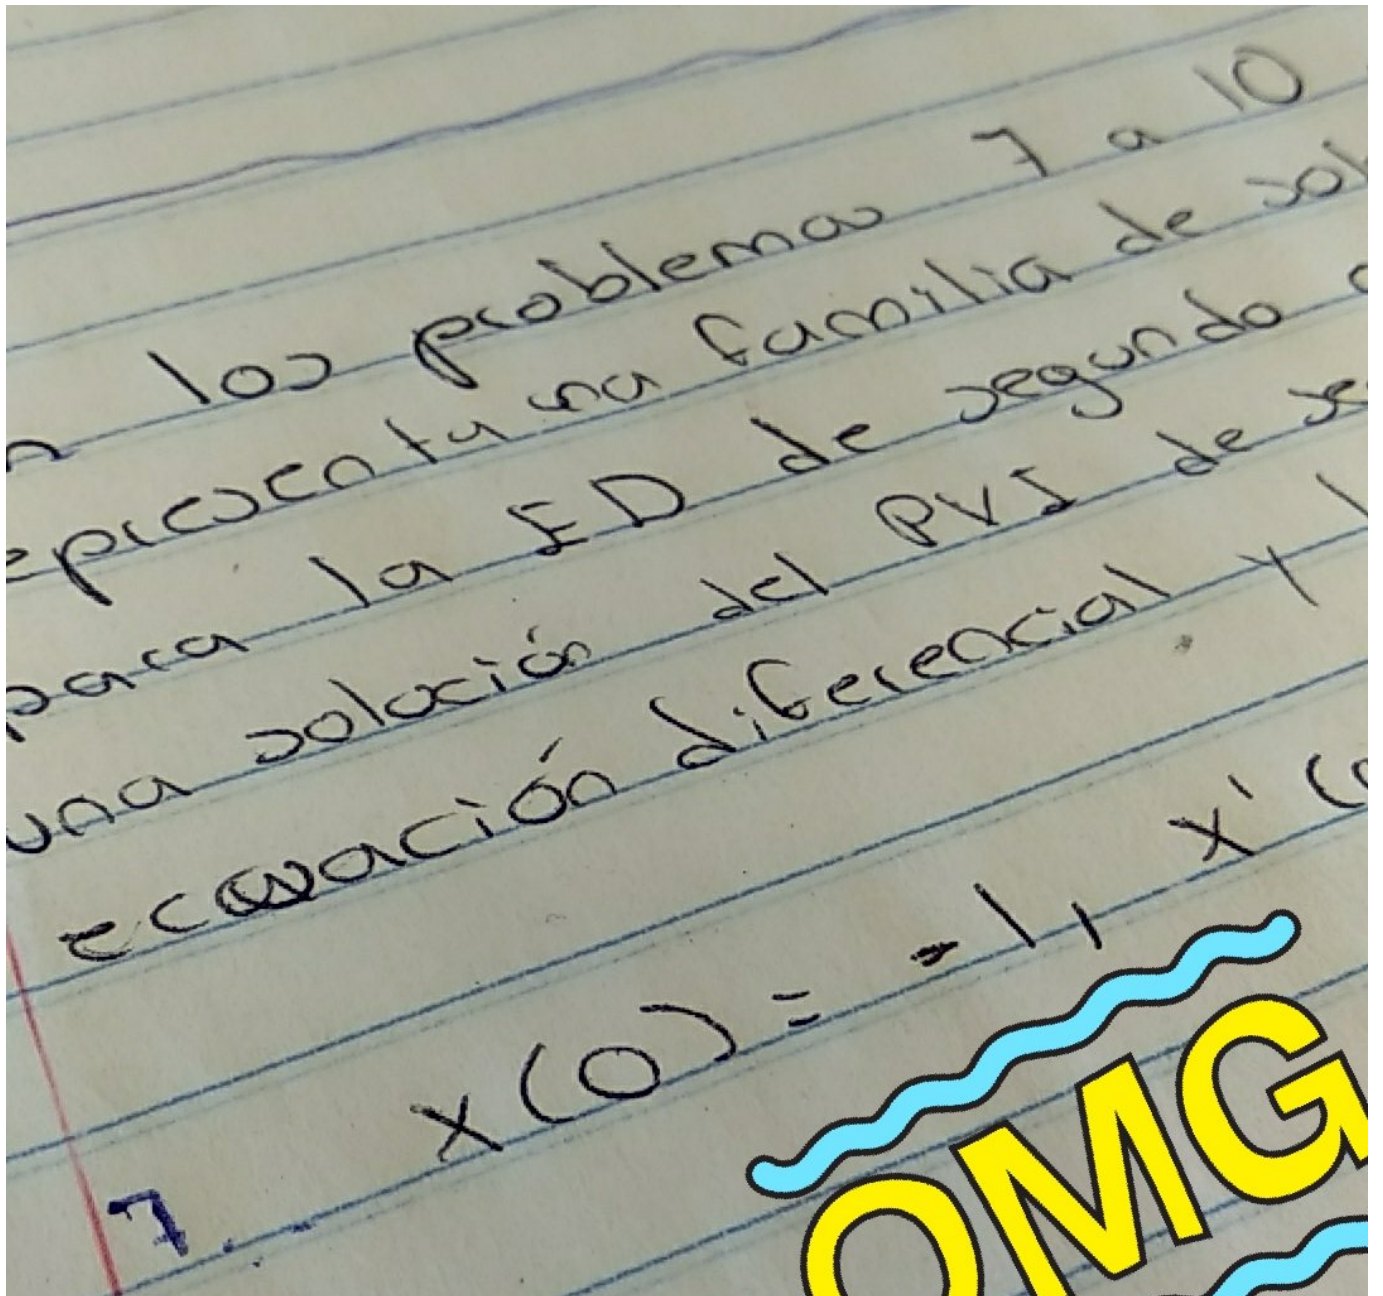 los problemas 7 a 10
epresenta una familia de sol
para la ED de segundo
una solución del PVI de se
ecuación diferencial y
x(0) = -1, x'(
7.-
OMG